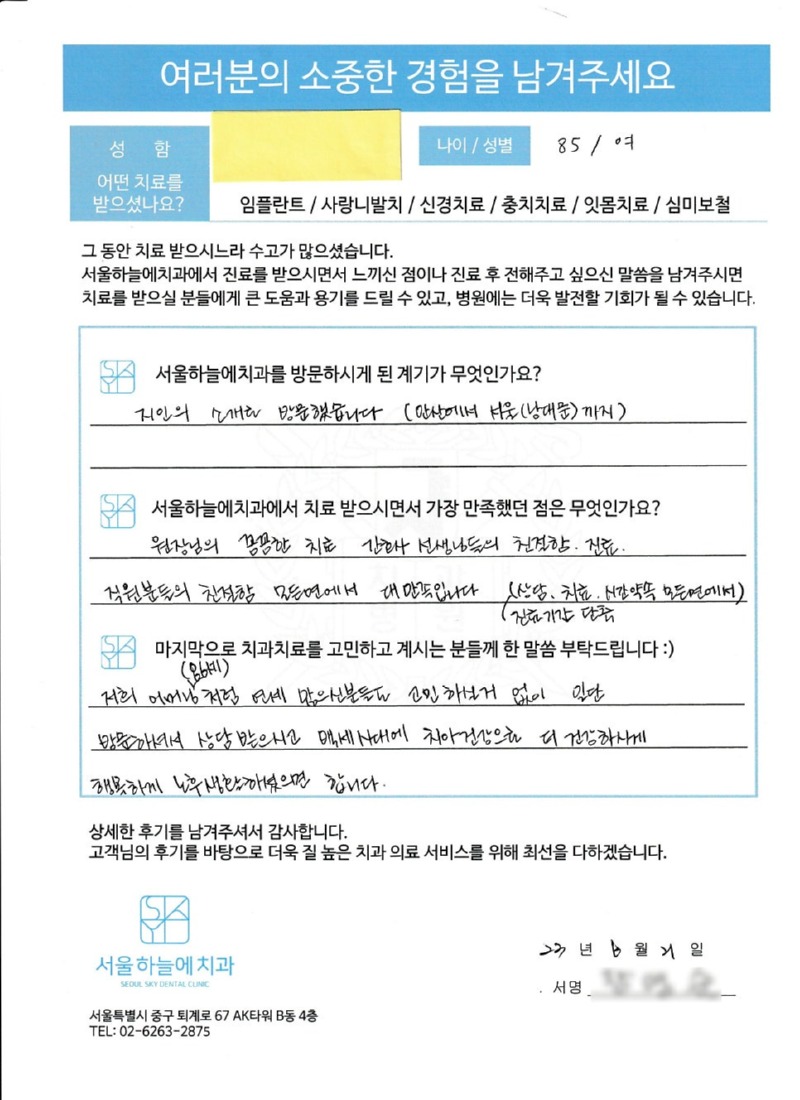 여러분의 소중한 경험을 남겨주세요
성 함
나이 / 성별
85 / 여
어떤 치료를
받으셨나요?
임플란트 / 사랑니발치 / 신경치료 / 충치치료 / 잇몸치료 / 심미보철
그 동안 치료 받으시느라 수고가 많으셨습니다.
서울하늘에치과에서 진료를 받으시면서 느끼신 점이나 진료 후 전해주고 싶으신 말씀을 남겨주시면
치료를 받으실 분들에게 큰 도움과 용기를 드릴 수 있고, 병원에는 더욱 발전할 기회가 될 수 있습니다.
SKY
서울하늘에치과를 방문하시게 된 계기가 무엇인가요?
지인의 소개로 방문했습니다 (안산에서 서울(남대문)까지)
SKY
서울하늘에치과에서 치료 받으시면서 가장 만족했던 점은 무엇인가요?
원장님의 꼼꼼한 치료 간호사 선생님들의 친절함. 진료.
직원분들의 친절함 모든면에서 대만족입니다 (상담, 치료, 시간약속 모든면에서)
(진료기간 단축
SKY
마지막으로 치과치료를 고민하고 계시는 분들께 한 말씀 부탁드립니다 :)
(85세)
저희 어머님처럼 연세 많으신분들도 고민하실거 없이 일단
방문하셔서 상담받으시고 백세시대에 치아건강으로 더 건강하시게
행복하게 노후생활하셨으면 합니다.
상세한 후기를 남겨주셔서 감사합니다.
고객님의 후기를 바탕으로 더욱 질 높은 치과 의료 서비스를 위해 최선을 다하겠습니다.
SKY
서울하늘에치과
SEOUL SKY DENTAL CLINIC
23 년 6 월 21 일
서명
서울특별시 중구 퇴계로 67 AK타워 B동 4층
TEL: 02-6263-2875